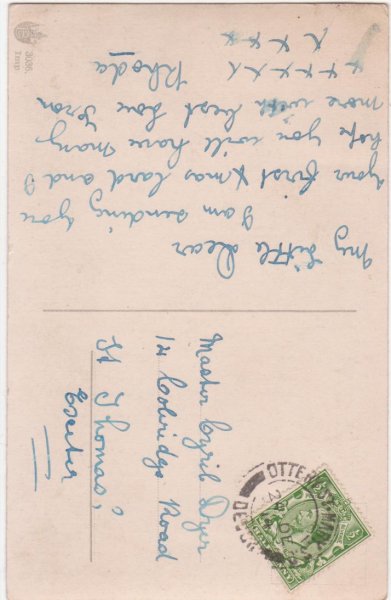 My Little Dear
I am sending you
your first Xmas Card and I
hope you will have many
more with best love from
Rhoda
x x x x x x
x x x x
Master Cyril Dyer
14 Cobridge Road
St Thomas,
Exeter
3036.
Imp.
OTTERY ST. MARY
DEVON